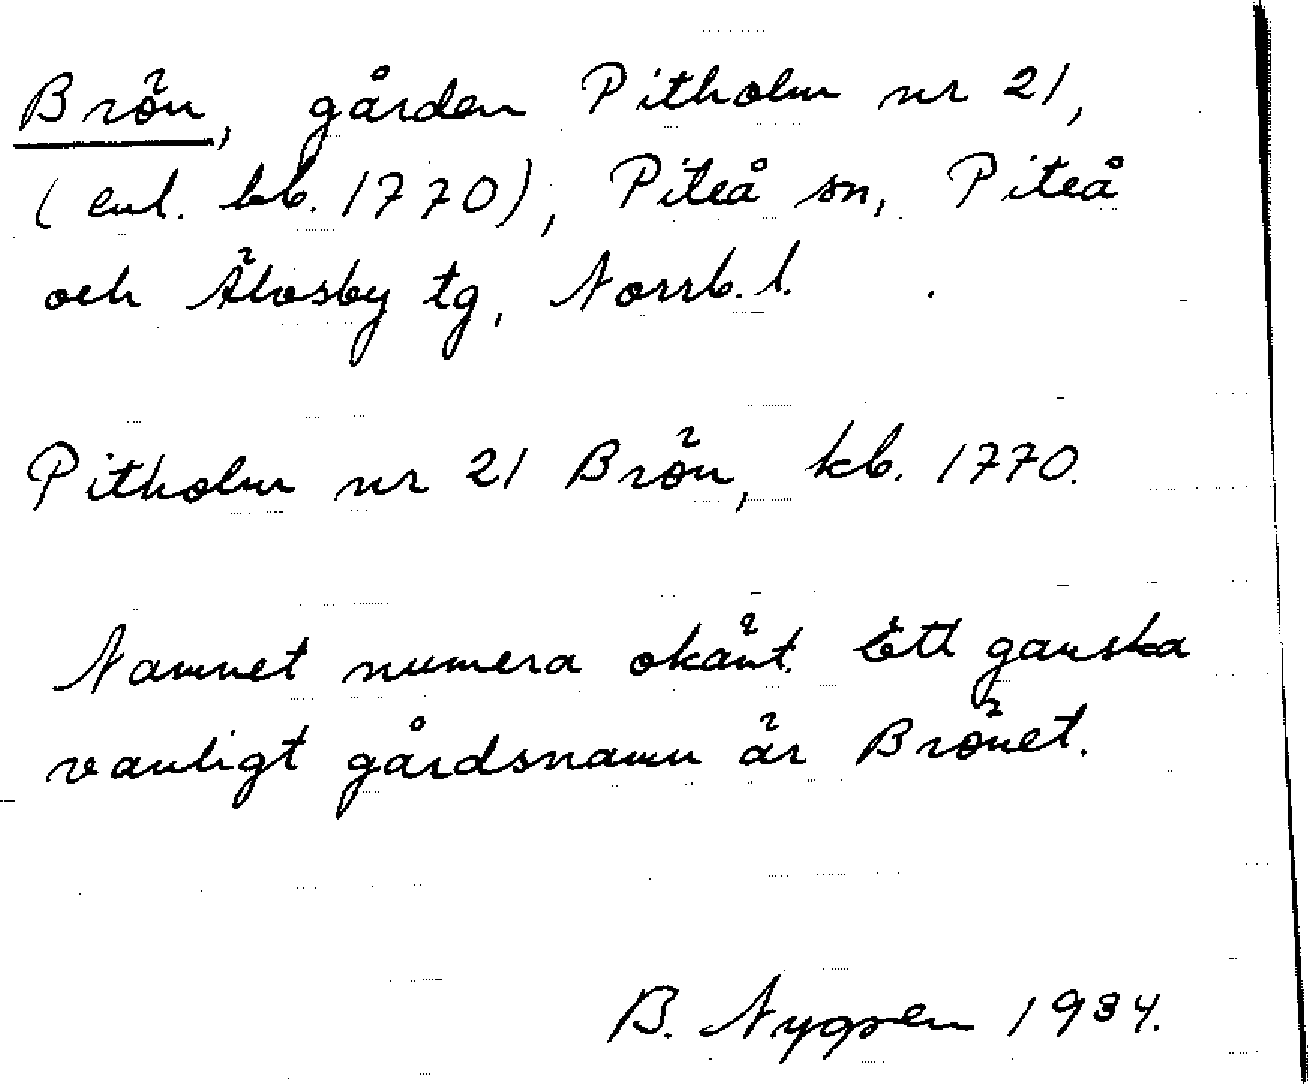 Brön, gården Pitholm nr 21,
(enl. kb. 1770), Piteå sn, Piteå
och Älvsby tg, Norrb. l.
Pitholm nr 21 Brön, kb. 1770.
Namnet numera okänt. Ett ganska
vanligt gårdsnamn är Brönet.
B. Nygren 1934.